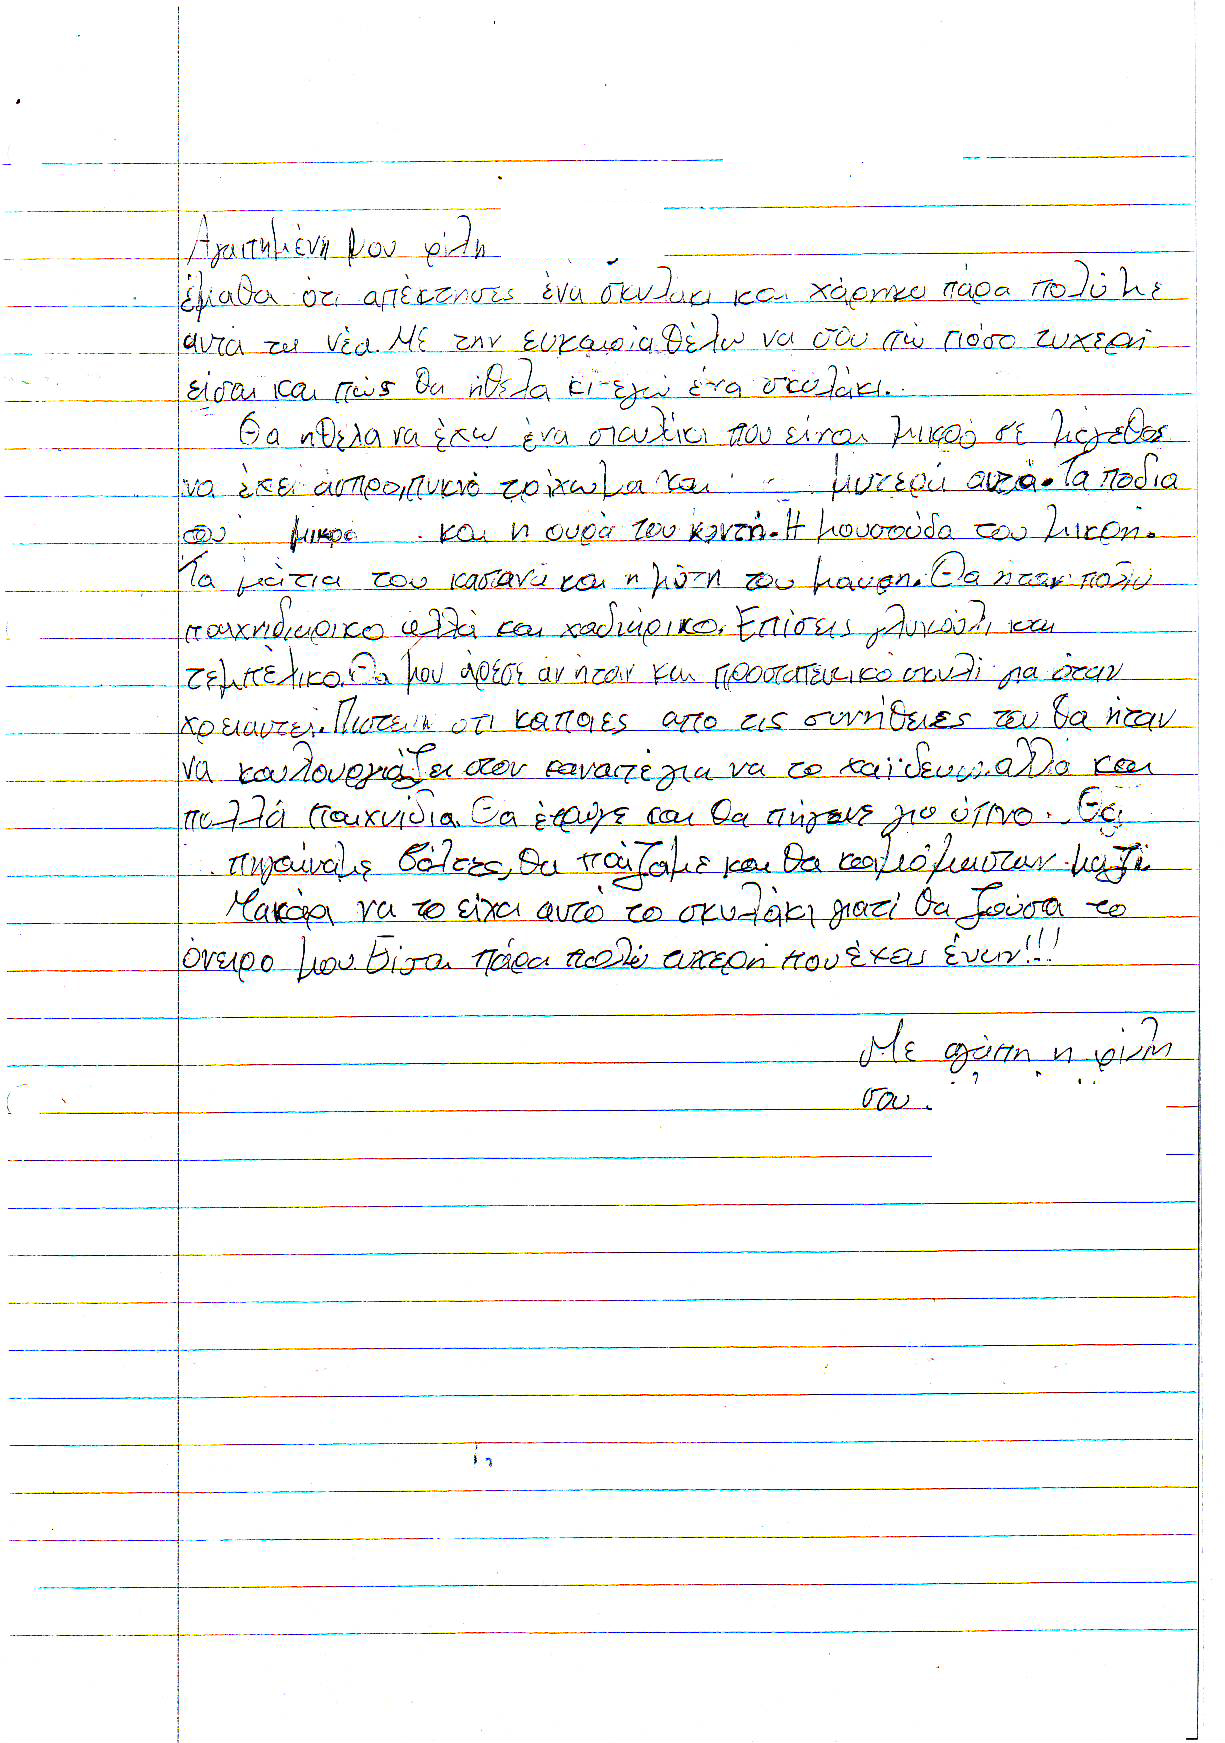 Αγαπημένη μου φίλη
έμαθα ότι απέκτησες ένα σκυλάκι και χάρηκα πάρα πολύ με
αυτά τα νέα. Με την ευκαιρία θέλω να σου πω πόσο τυχερή
είσαι και πώς θα ήθελα κι εγώ ένα σκυλάκι.
Θα ήθελα να έχω ένα σκυλάκι που είναι μικρό σε μέγεθος
να έχει άσπρο, πυκνό τρίχωμα και μυτερά αυτά. Τα πόδια
του μικρα και η ουρά του κοντή. Η μουσούδα του μικρή.
Τα μάτια του καστανά και η μύτη του μαύρη. Θα ήταν πολύ
παιχνιδιάρικο αλλά και χαδιάρικο. Επίσεις γλυκούλι και
τεμπέλικο. Θα μου άρεσε αν ήταν και προστατευτικό σκυλί για όταν
χρειαστεί. Πιστευω οτι κάποιες απο τις συνήθειες του θα ήταν
να κουλουργιάζει στον καναπέ για να το χαϊδευω. αλλά και
πολλά παιχνίδια. Θα έτρωγε και θα πήγαινε για ύπνο. Θα
πηγαίναμε βόλτες, θα παίζαμε και θα κοιμόμασταν μαζί
Μακάρι να το είχα αυτό το σκυλάκι γιατί θα ζούσα το
όνειρο μου. Είσαι πάρα πολύ τυχερή που έχεις έναν!!!
Με αγάπη η φίλη
σου.